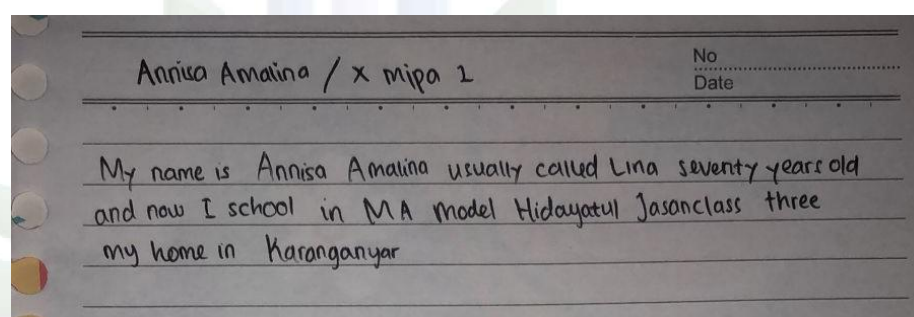 Annisa Amalina / X mipa 1
No
Date
My name is Annisa Amalina usually called Lina seventy years old
and now I school in MA Model Hidayatul Jasanclass three
my home in Karanganyar